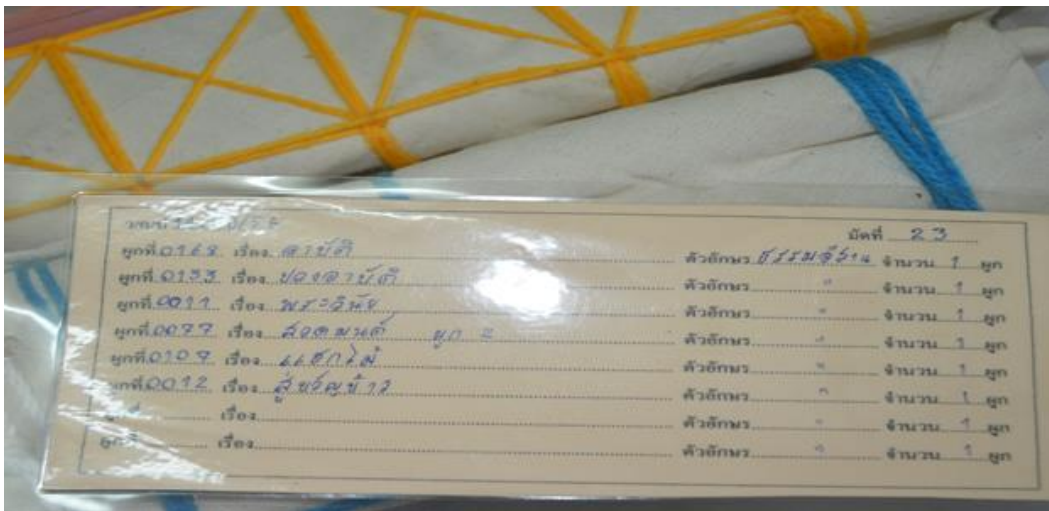 มัดที่ 23
ผูกที่ 0168 เรื่อง อาบัติ ตัวอักษร ธรรมอีสาน จำนวน 1 ผูก
ผูกที่ 0133 เรื่อง ปองอาบัติ ตัวอักษร " จำนวน 1 ผูก
ผูกที่ 0011 เรื่อง พระวินัย ตัวอักษร " จำนวน 1 ผูก
ผูกที่ 0077 เรื่อง สวดมนต์ ผูก 2 ตัวอักษร " จำนวน 1 ผูก
ผูกที่ 0107 เรื่อง ตัวอักษร " จำนวน 1 ผูก
ผูกที่ 0012 เรื่อง สู่ขวัญข้าว ตัวอักษร " จำนวน 1 ผูก
เรื่อง ตัวอักษร " จำนวน 1 ผูก
ผูกที่ เรื่อง ตัวอักษร " จำนวน 1 ผูก